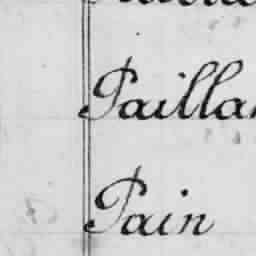 Pailla
Pain